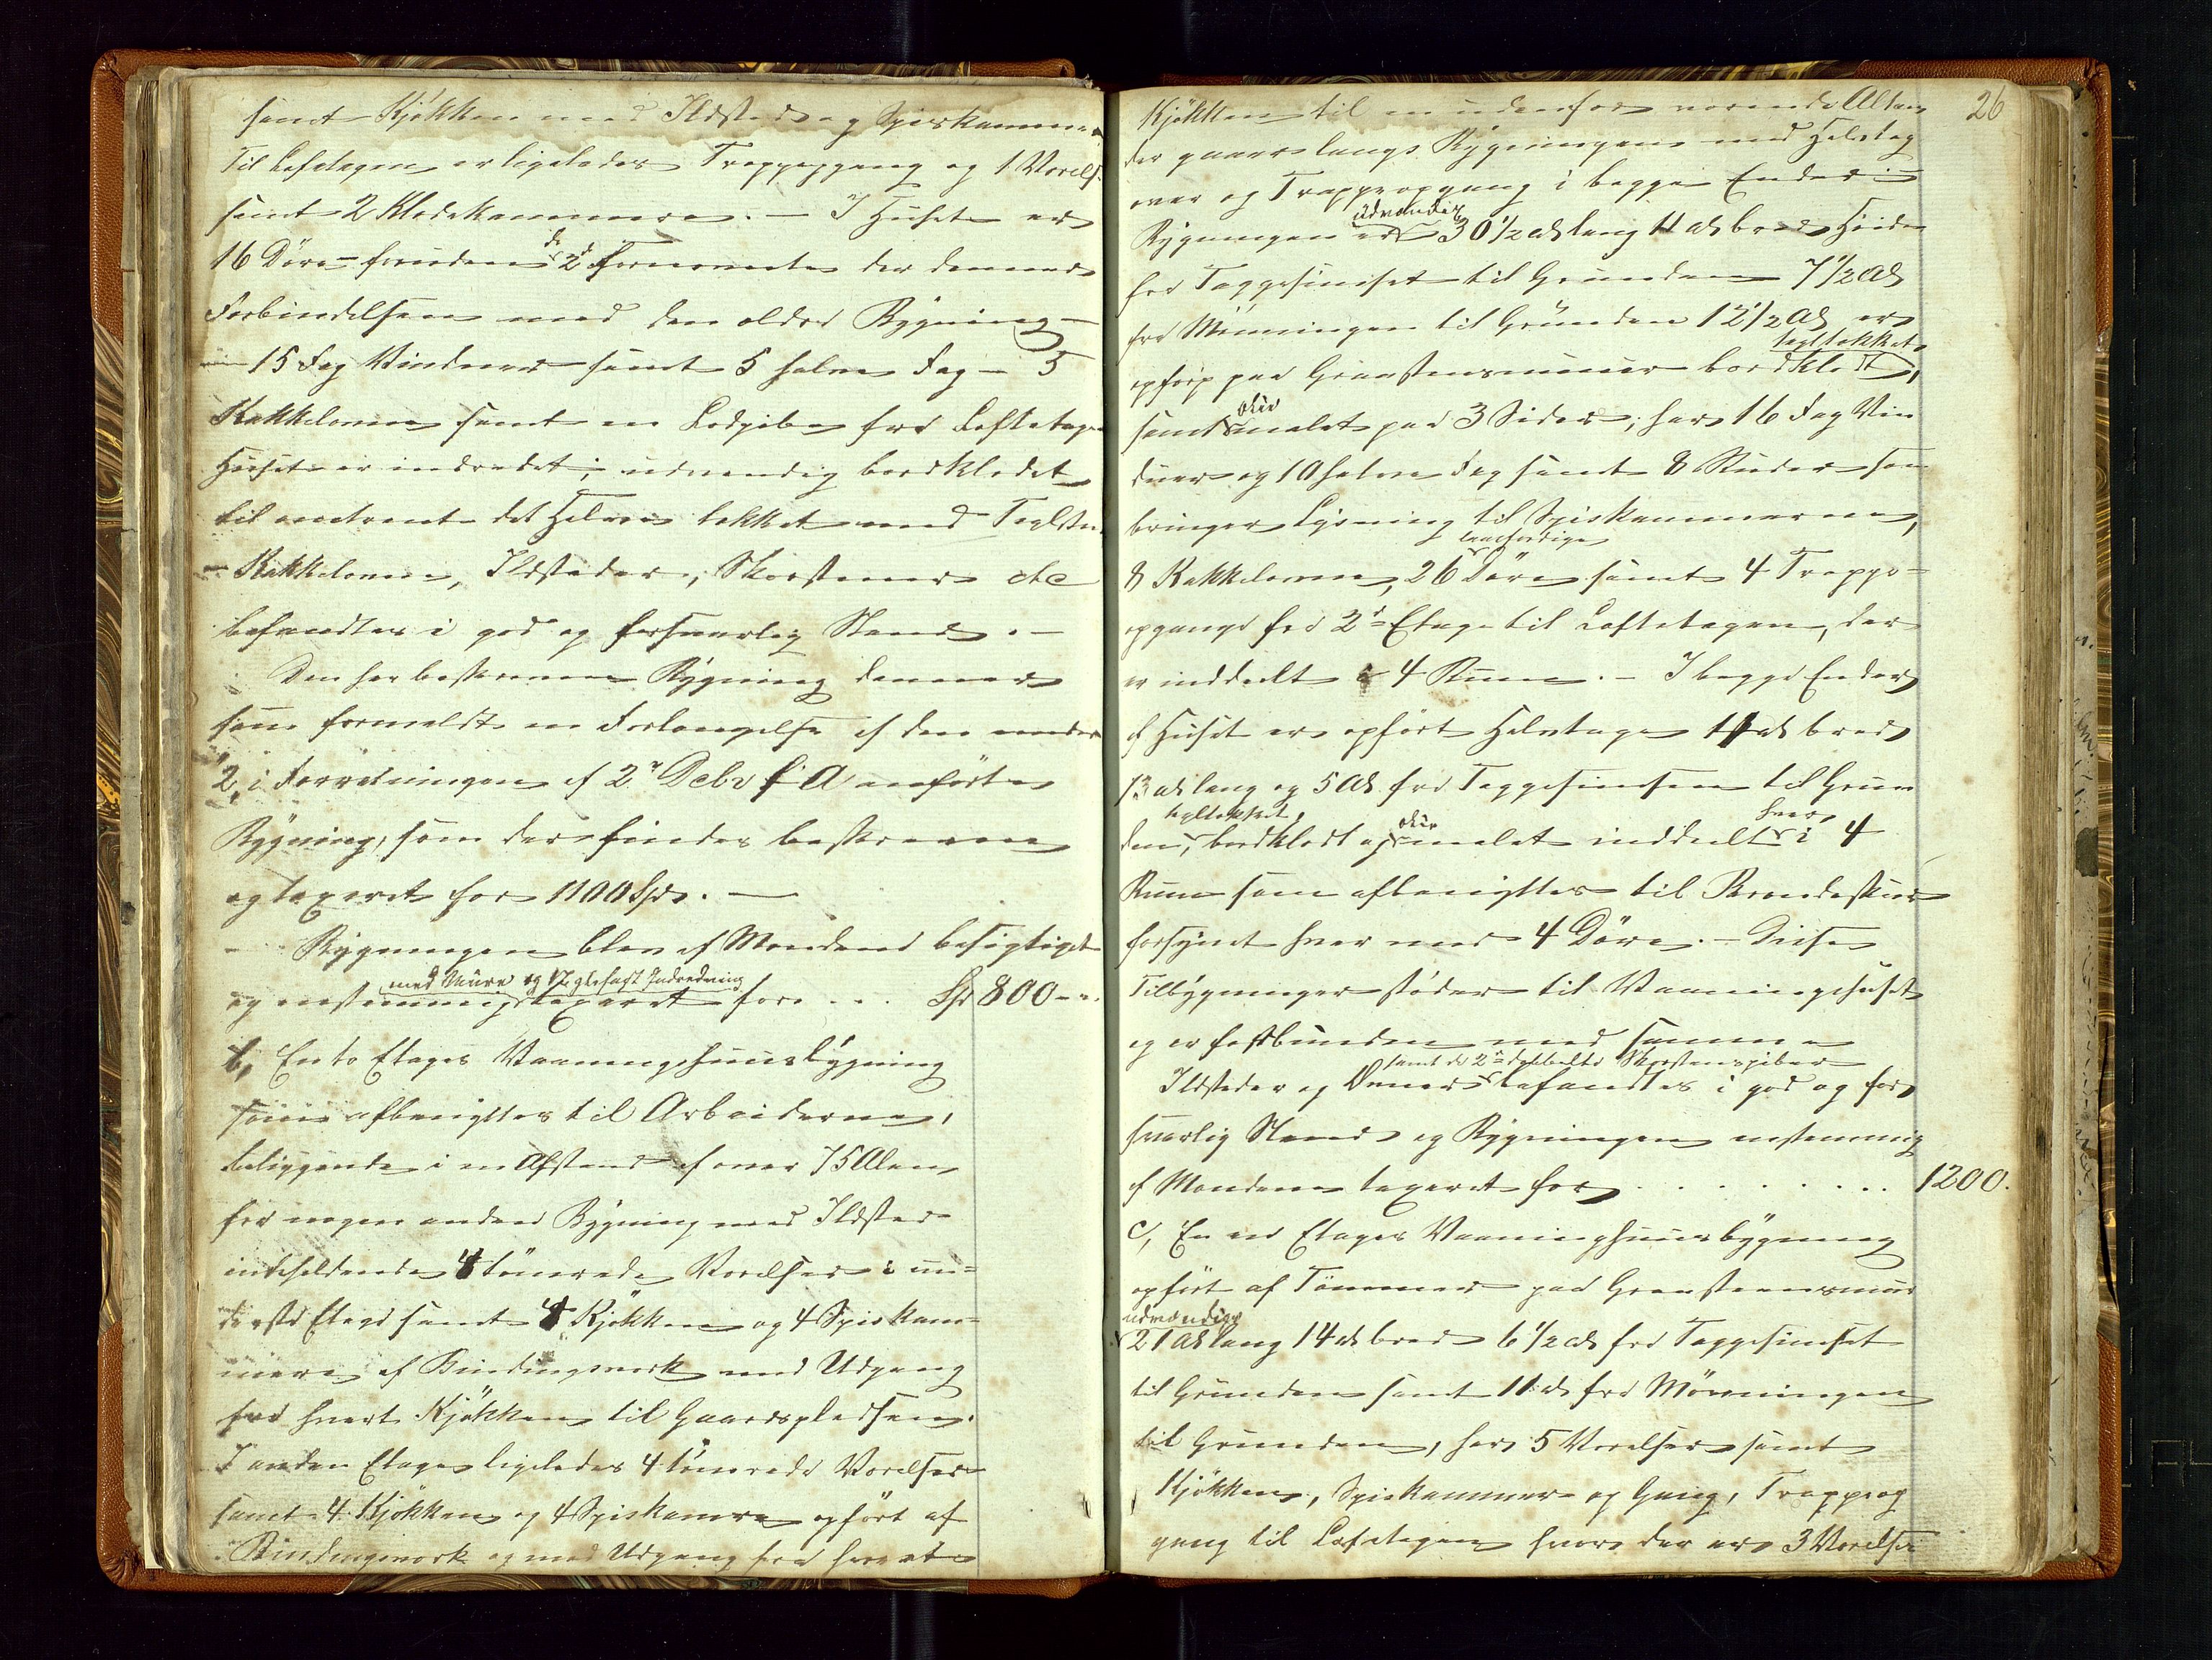 samt Kjøkken med Ildsted og Spiskammer
Til Loftetagen er ligeledes Trappegang og 1 Værelse
samt 2 Klædekammere. — I Huset er
16 Döre foruden de 2de förnævnte der danner
Forbindelsen med den ældre Bygning —
15 Fag Vinduer samt 5 halve Fag — 5
Kakkelovne samt en Lodpibe fra Loftetagen
Huset er indredet, udvendig bordklædet
til omtrent det Halve takket med Teglsten
— Kakkelovne, Ildsteder, Skorstener etc
befandtes i god og forsvarlig Stand. —
Den her beskrevne Bygning danner
som formeldt en Forlængelse af den under
2, i Forretningen af 2n Debr f. A anförte
Bygning, som der findes beskreven
og taxeret for 1100 Spd. —
Bygningen blev af Mændene besigtiget
med Mure og Nagelfast Indredning
og eenstemmig taxeret for . . . Spd 800 - -
b, En to Etages Vaaningshuusbygning
som afbenyttes til Arbeiderne,
beliggende i en Afstand af over 75 Alen
fra nogen anden Bygning med Ildsted
indeholdende 4 tömrede Værelser i un-
derste Etage samt 4 Kjökken og 4 Spiskam-
mere af Bindingsværk med Udgang
fra hvert Kjökken til Gaardspladsen.
I anden Etage ligeledes 4 tömrede Værelser
samt 4 Kjökken og 4 Spiskamre opfört af
Bindingsværk og med Udgang fra hvert
26
Kjökken til en udenfor værende Altan
der gaaer langs Bygningen med Halvtag
over og Trappeopgang i begge Ender —
udvendig
Bygningen er 30 1/2 al lang 11 al bred Höide
fra Taggesimset til Grunden 7 1/2 Al
fra Mönningen til Grunden 12 1/2 Al er
tegltækket,
opført paa Graasteensmuur bordklædt,
olie
samt malet paa 3 Sider, har 16 Fag Vin
duer og 10 halve Fag samt 8 Ruder som
bringer Lysning til Spiskammerne,
laasfærdige
8 Kakkelovne, 26 Döre samt 4 Trappe-
opgange fra 2d Etage til Loftetagen, der
er inddeelt i 4 Rum. — I begge Ender
af Huset er opfört Halvtage 11 al bred
13 al lang og 5 Al fra Taggesimsen til Grun
tegltækket, olie hver
den, bordklædt og malet inddeelt i 4
Rum som afbenyttes til Brændeskur
forsynet hver med 4 Döre. — Disse
Tilbygninger stöder til Vaaningshuset
og er forbunden med samme
samt de 2de dobbelte Skorstenspiber
Ildsteder og Ovner befandtes i god og for
svarlig Stand og Bygningen enstemmig
af Mændene taxeret for . . . . . . . . 1200.
c, En een Etages Vaaninghuusbygning
opfört af Tömmer paa Graasteensmuur
udvendig
21 Al lang 14 al bred 6 1/2 al fra Taggesimset
til Grunden samt 11 al fra Mönningen
til Grunden, har 5 Værelser samt
Kjökken, Spiskammer og Gang, Trappeop
gang til Loftetagen hvor der er 3 Værelser